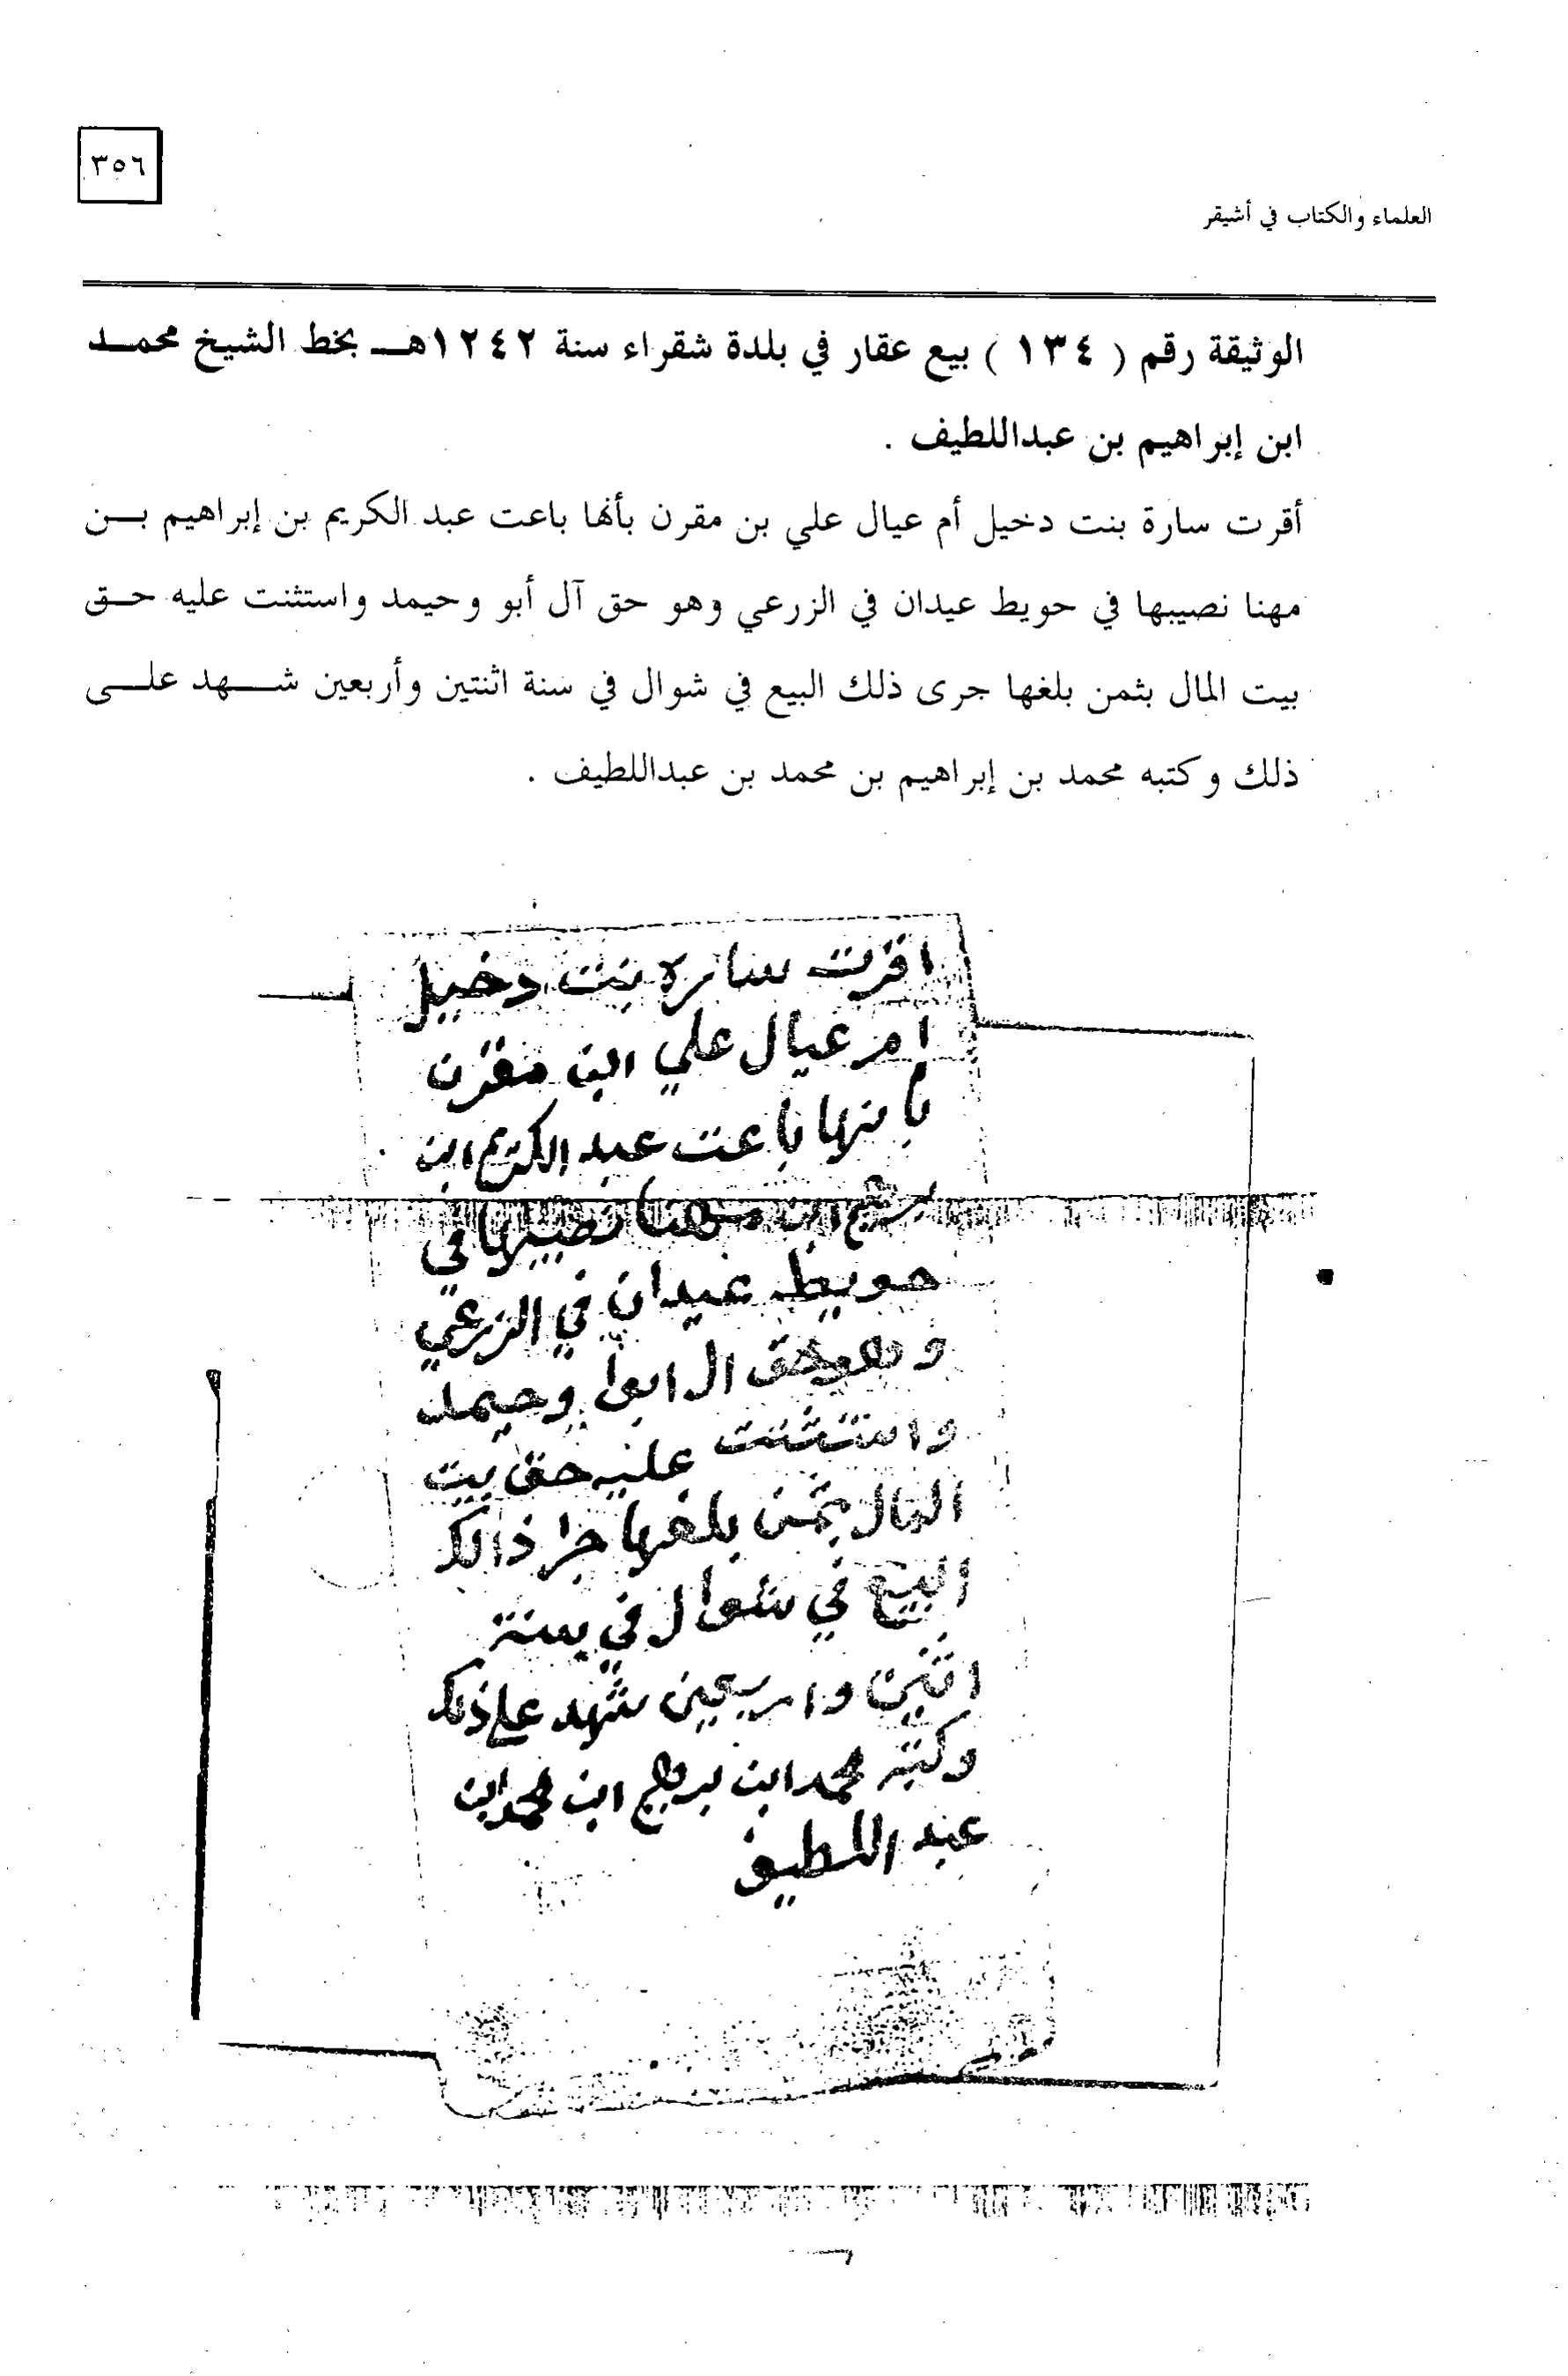 ٣٥٦
العلماء والكتاب في أشيقر
الوثيقة رقم ( ١٣٤ ) بيع عقار في بلدة شقراء سنة ١٢٤٢هـ بخط الشيخ محمد
ابن إبراهيم بن عبداللطيف .
أقرت سارة بنت دخيل أم عيال علي بن مقرن بأنها باعت عبد الكريم بن إبراهيم بن
مهنا نصيبها في حويط عيدان في الزرعي وهو حق آل أبو وحيمد واستثنت عليه حق
بيت المال بثمن بلغها جرى ذلك البيع في شوال في سنة اثنتين وأربعين شهد على
ذلك وكتبه محمد بن إبراهيم بن محمد بن عبداللطيف .
اقرت ساره بنت دخيل
ام عيال علي ابن مقرن
بأنها باعت عبد الكريم ابن
ابن مهنا نصيبها في
حويط عيدان في الزرعي
وهو حق ال ابوا وحيمد
واستثنت عليه حق بيت
المال بثمن بلغها جرا ذالك
البيع في شوال في سنة
اثنين واربعين شهد على ذلك
وكتبه محمد ابن برهيم ابن محمد ابن
عبد اللطيف